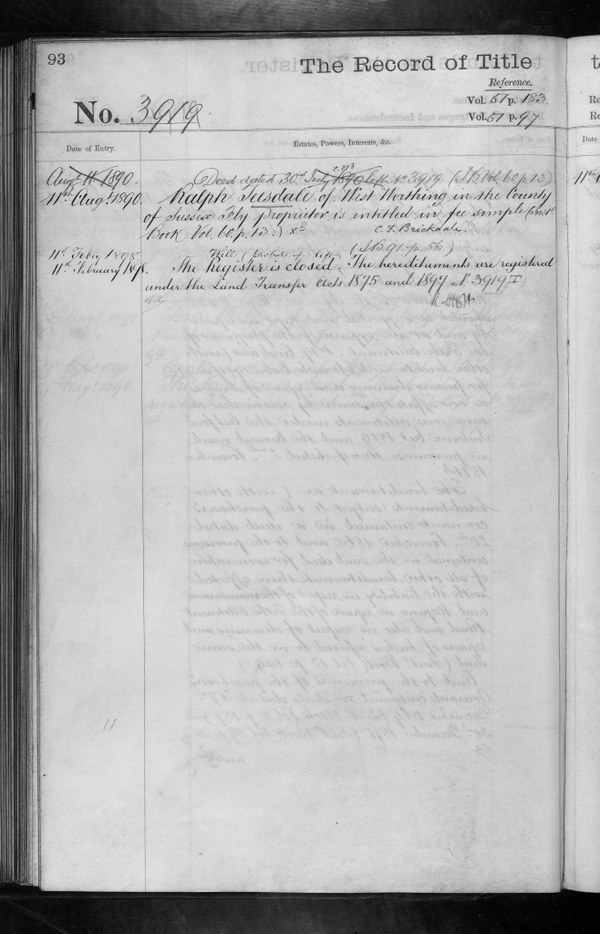 93
The Record of Title
Reference.
No. 3919
Vol. 51 p. 133
Vol. 51 p. 97
Date of Entry.
Estates, Powers, Interests, &c.
Augt. 11 1890. Deed dated 30th July 1890 left 3919 (I. B. Vol. 60 p. 13)
11th Augt. 1890. Ralph Teesdale of West Worthing in the County
of Sussex Esq proprietor is entitled in fee simple (Inst
Book Vol. 60 p. 13.) C. F. Brickdale.
11th Feby 1898. Will (probate of) left (I. B. 91. p. 56)
11th February 1898. The Register is closed. The hereditaments are registered
under the Land Transfer Acts 1875 and 1897 No 3919